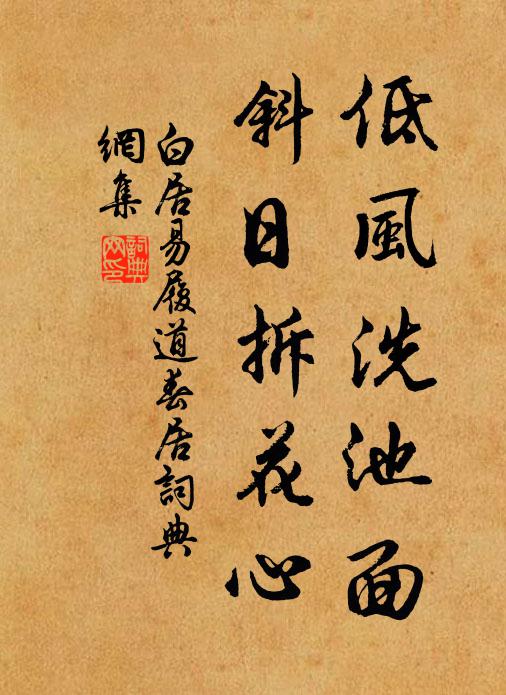 低風洗池面
斜日拆花心
白居易履道春居詞典
網集
詞典
网印